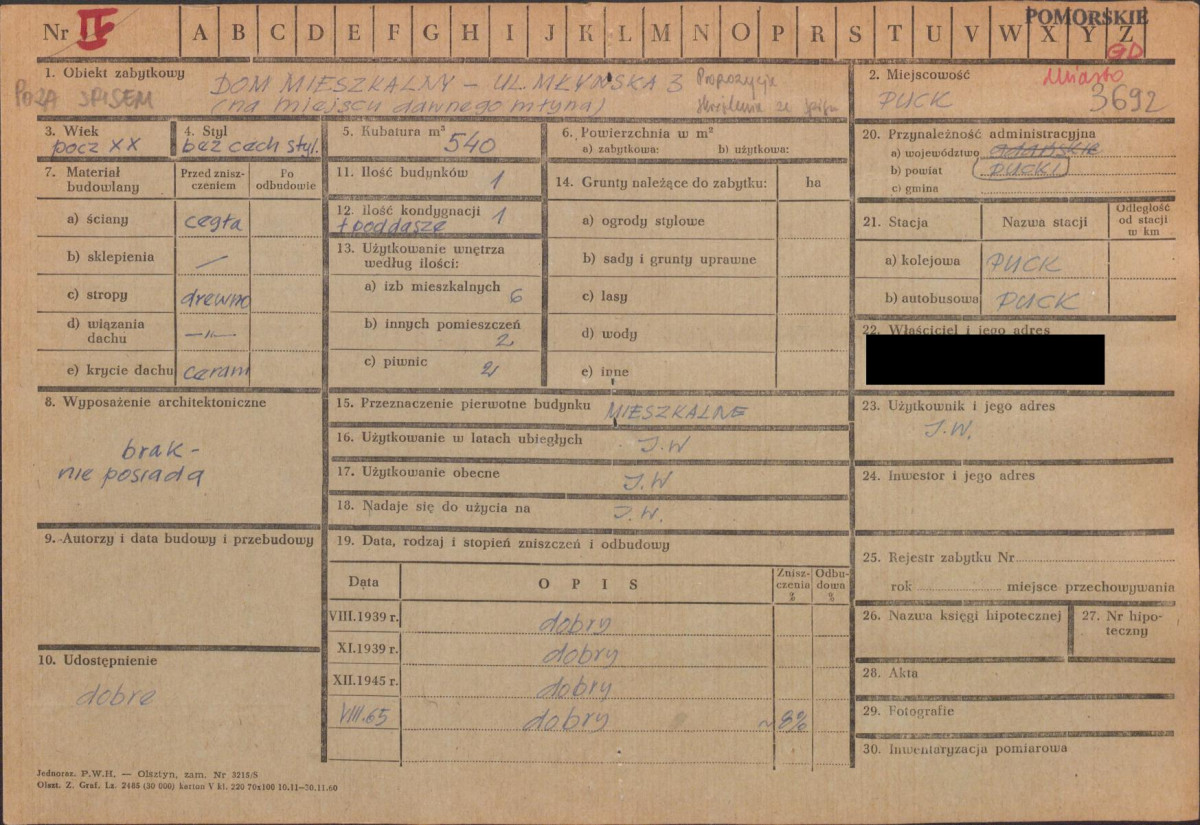 Nr IV A B C D E F G H I J K L M N O P R S T U V W X Y Z
POMORSKIE
GD
1. Obiekt zabytkowy
DOM MIESZKALNY – UL. MŁYŃSKA 3
(na miejscu dawnego młyna)
POZA SPISEM
Propozycja
skreślenia ze spisu
2. Miejscowość
Miasto
PUCK
3692
3. Wiek
pocz XX
4. Styl
bez cech styl.
5. Kubatura m³
540
6. Powierzchnia w m²
a) zabytkowa: b) użytkowa:
7. Materiał budowlany
Przed zniszczeniem
Po odbudowie
a) ściany cegła
b) sklepienia —
c) stropy drewno
d) wiązania dachu —"—
e) krycie dachu ceram
8. Wyposażenie architektoniczne
brak -
nie posiada
9. Autorzy i data budowy i przebudowy
10. Udostępnienie
dobre
11. Ilość budynków 1
12. ilość kondygnacji 1
+ poddasze
13. Użytkowanie wnętrza
według ilości:
a) izb mieszkalnych 6
b) innych pomieszczeń
2
c) piwnic 2
14. Grunty należące do zabytku: ha
a) ogrody stylowe
b) sady i grunty uprawne
c) lasy
d) wody
e) inne
15. Przeznaczenie pierwotne budynku MIESZKALNE
16. Użytkowanie w latach ubiegłych J.W
17. Użytkowanie obecne J.W
18. Nadaje się do użycia na J.W.
19. Data, rodzaj i stopień zniszczeń i odbudowy
Data OPIS Zniszczenia % Odbudowa %
VIII.1939 r. dobry
XI.1939 r. dobry
XII.1945 r. dobry
VIII.65 dobry ~8%
20. Przynależność administracyjna
a) województwo GDAŃSKIE
b) powiat PUCKI
c) gmina
21. Stacja Nazwa stacji Odległość od stacji w km
a) kolejowa PUCK
b) autobusowa PUCK
22. Właściciel i jego adres
23. Użytkownik i jego adres
J.W.
24. Inwestor i jego adres
25. Rejestr zabytku Nr
rok miejsce przechowywania
26. Nazwa księgi hipotecznej
27. Nr hipoteczny
28. Akta
29. Fotografie
30. Inwentaryzacja pomiarowa
Jednoraz. P.W.H. — Olsztyn, zam. Nr 3215/S
Olszt. Z. Graf. Lz. 2485 (30 000) karton V kl. 220 70x100 10.11—30.11.60